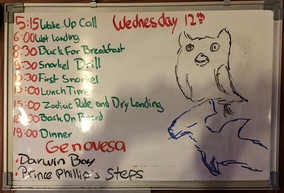 Wednesday 12th
5:15 Wake Up Call
6:00 Wet Landing
8:30 Back For Breakfast
9:30 Snorkel Drill
:30 First Snorkel
:00 Lunch Time
:15 Zodiac Ride and Dry Landing
:00 Back On Board
19:00 Dinner
Genovesa
• Darwin Bay
• Prince Phillip's Steps